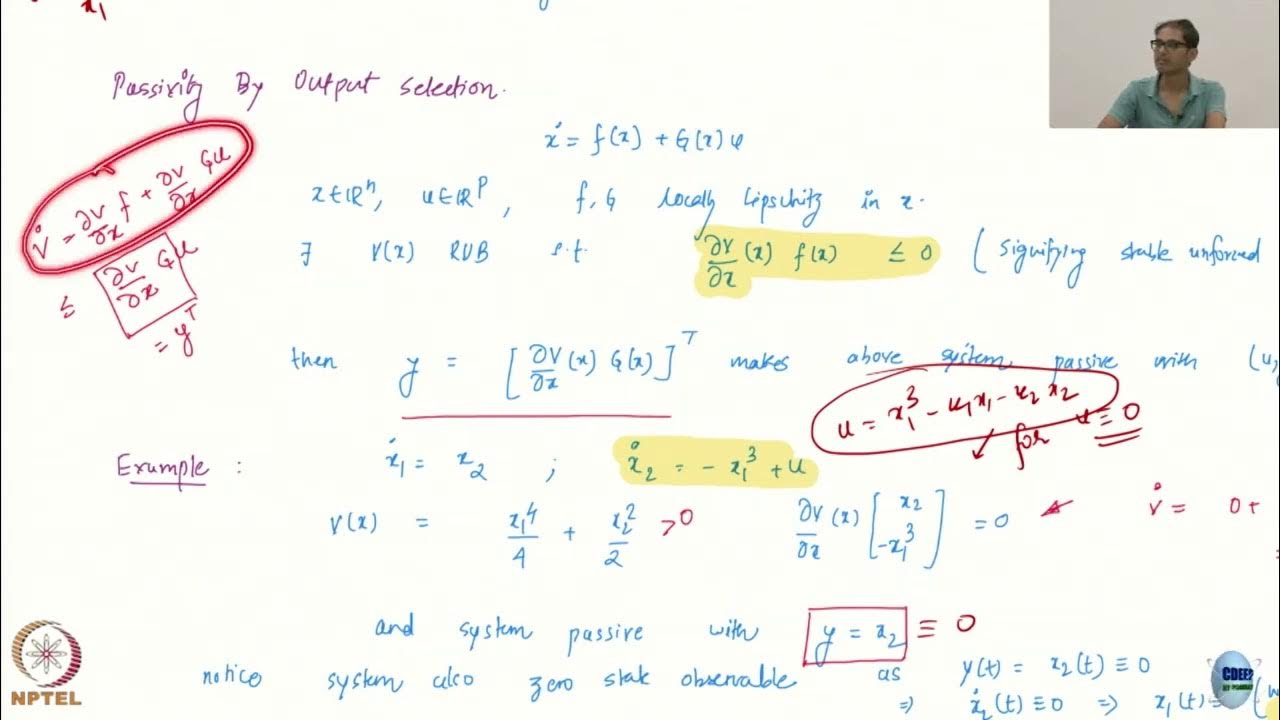 x₁
Passivity By Output Selection.
ẋ = f(x) + G(x) u
V̇ = ∂V/∂x f + ∂V/∂x Gu
x ∈ ℝⁿ, u ∈ ℝᵖ, f, G locally Lipschitz in x.
∃ V(x) RUB s.t. ∂V/∂x (x) f(x) ≤ 0 (Signifying stable unforced
≤ ∂V/∂x Gu
= yᵀ
then y = [∂V/∂x (x) G(x)]ᵀ makes above system passive with (u,
u = x₁³ - k₁x₁ - k₂x₂
for u ≡ 0
Example : ẋ₁ = x₂ ; ẋ₂ = - x₁³ + u
V(x) = x₁⁴/4 + x₂²/2 > 0 ∂V/∂x (x) [x₂ -x₁³] = 0 V̇ = 0 +
and system passive with y = x₂ ≡ 0
notice system also zero state observable as y(t) = x₂(t) ≡ 0
⇒ ẋ₂(t) ≡ 0 ⇒ x₁(t) ≡
NPTEL
CDEEP
IIT BOMBAY